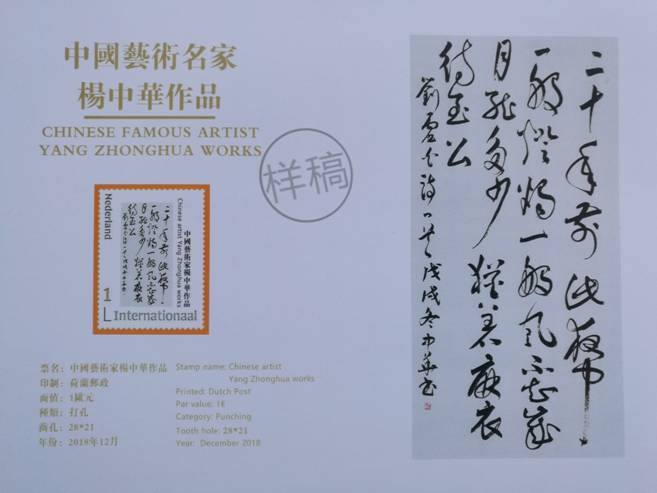 中國藝術名家
楊中華作品
CHINESE FAMOUS ARTIST
YANG ZHONGHUA WORKS
样稿
Nederland
中國藝術家楊中華作品
Chinese artist Yang Zhonghua works
1
Internationaal
票名：中國藝術家楊中華作品
印制：荷蘭郵政
面値：1歐元
種類：打孔
齒孔：28*21
年份：2018年12月
Stamp name: Chinese artist
Yang Zhonghua works
Printed: Dutch Post
Par value: 1€
Category: Punching
Tooth hole: 28*21
Year: December 2018
二十年前此夜中
一般燈燭一般風不知歲
月能多少猶著麻衣
待至公
劉虛白詩一首戊戌冬中華書